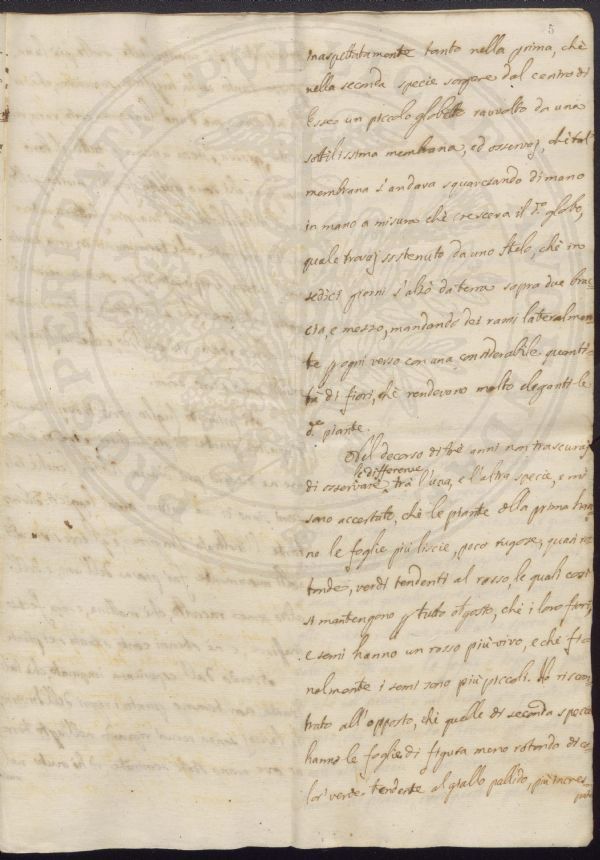 5
inaspettatamente tanto nella prima, chè
nella seconda specie sorgere dal centro di
Esse un piccolo globetto ravvolto da una
sottilissima membrana, ed osservaj, chè tal
membrana s'andava squarciando di mano
in mano a misura chè cresceva il d.º globo,
quale trovaj sostenuto da uno stelo, chè in
sedici giorni s'alzò da terra sopra due brac-
cia, e mezzo, mandando dei rami lateralmen-
te p ogni verso con una considerabile quanti-
tà di fiori, chè rendevano molto eleganti le
d.e piante.
Nel decorso di trè anni non trascuraj
le differenze
di osservare trà l'una, e l'altra specie, e mi
sono accertato, chè le piante della prima han-
no le foglie più liscie, poco rugose, quasi ro-
tonde, verdi tendenti al rosso, le quali così
si mantengono p tutto Agosto, chè i loro fiori,
e semi hanno un rosso più vivo, e chè fi-
nalmente i semi sono più piccoli. Ho riscon-
trato all'opposto, chè quelle di seconda specie
hanno le foglie di figura meno rotondo di co-
lor verde tendente al giallo pallido, più increspate